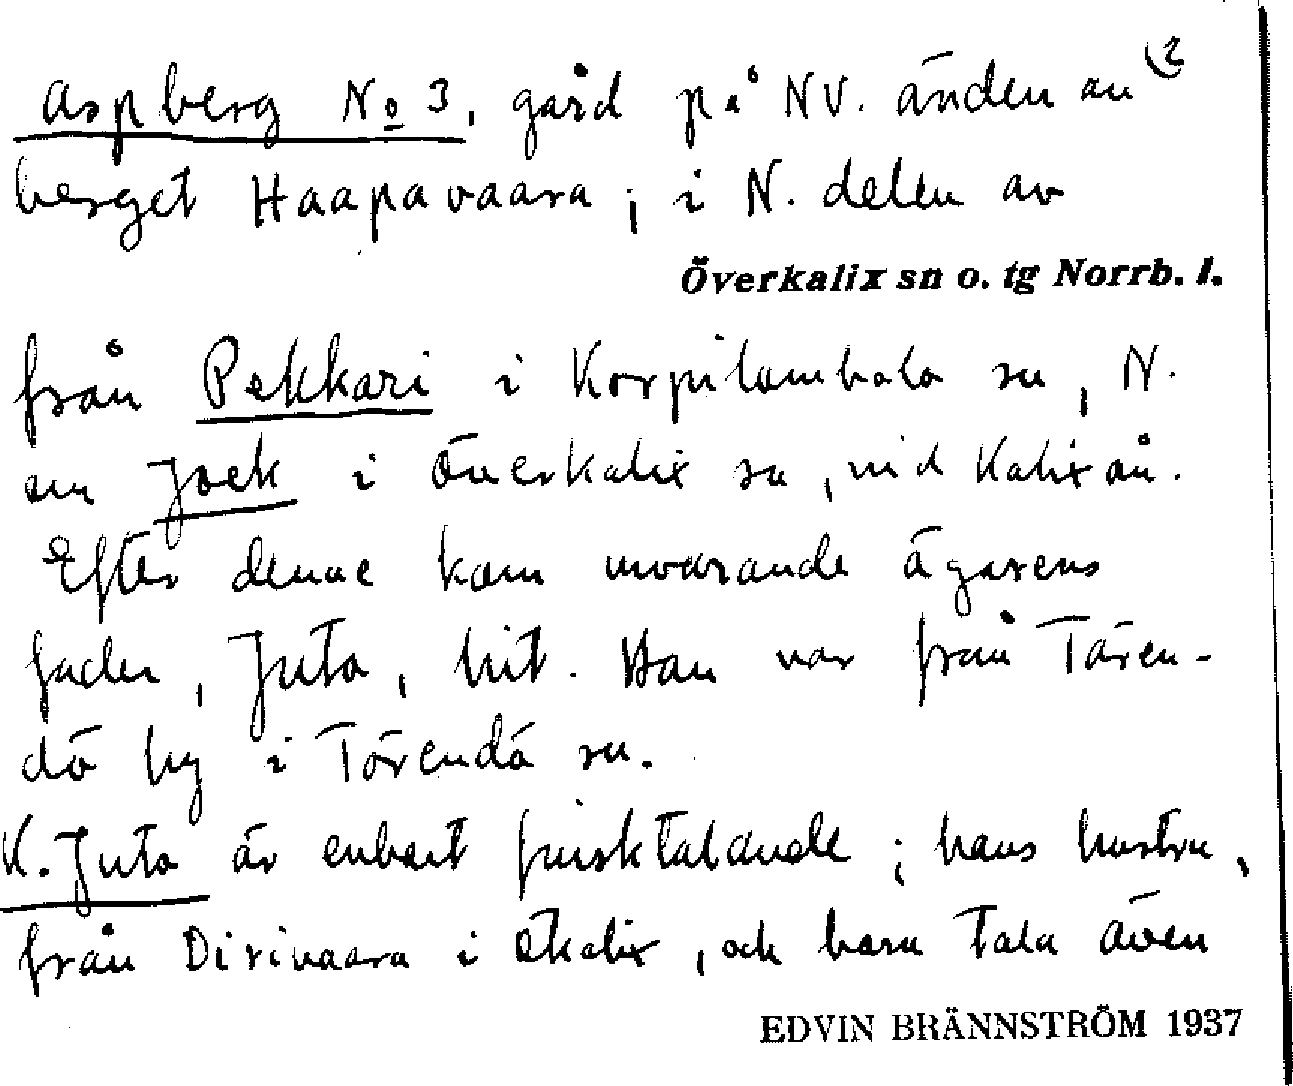 (2
Aspberg No 3, gård på NV. änden av
berget Haapavaara; i N. delen av
Överkalix sn o. tg Norrb. l.
från Pekkari i Korpilombolo sn, N.
om Jock i Överkalix sn, vid Kalixån.
Efter denne kom nuvarande ägarens
fader, Juto, hit. Han var från Tären-
dö by i Tärendö sn.
K. Juto är enbart finsktalande; hans hustru,
från Dirivaara i Ökalix, och barn tala även
EDVIN BRÄNNSTRÖM 1937